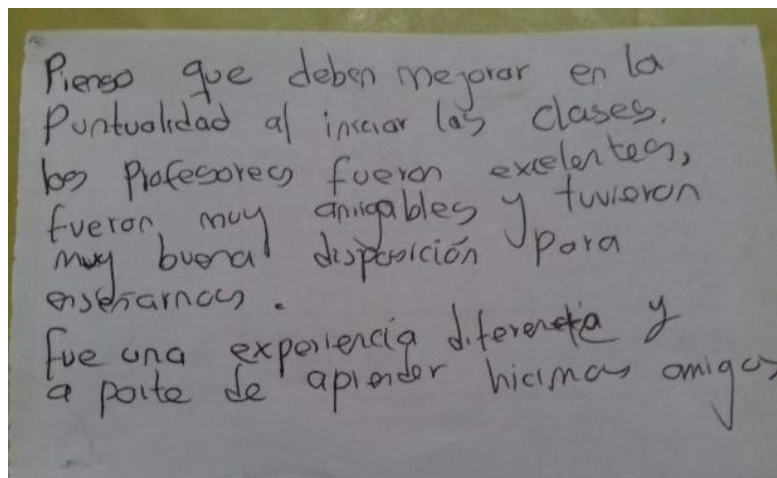 Pienso que deben mejorar en la
Puntualidad al iniciar las clases.
los Profesores fueron excelentes,
fueron muy amigables y tuvieron
muy buena disposición para
enseñarnos.
fue una experiencia diferente y
a parte de aprender hicimos amigos